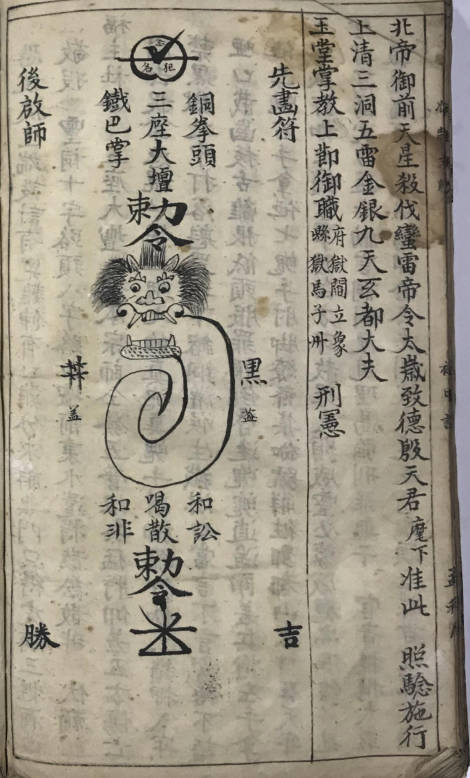 北帝御前天星殺伐蠻雷帝令太歲致德殷天君麾下准此 照驗施行
上清三洞五雷金銀九天玄都大夫
玉堂掌教上卿御職 府獄間立象 縣獄馬子卅 刑憲
先畫符
吉
銅拳頭
黑
和訟
名犯
三座大壇
敕令
喝散
敕令
鐵巴掌
和非
蓋
後敕師
勝